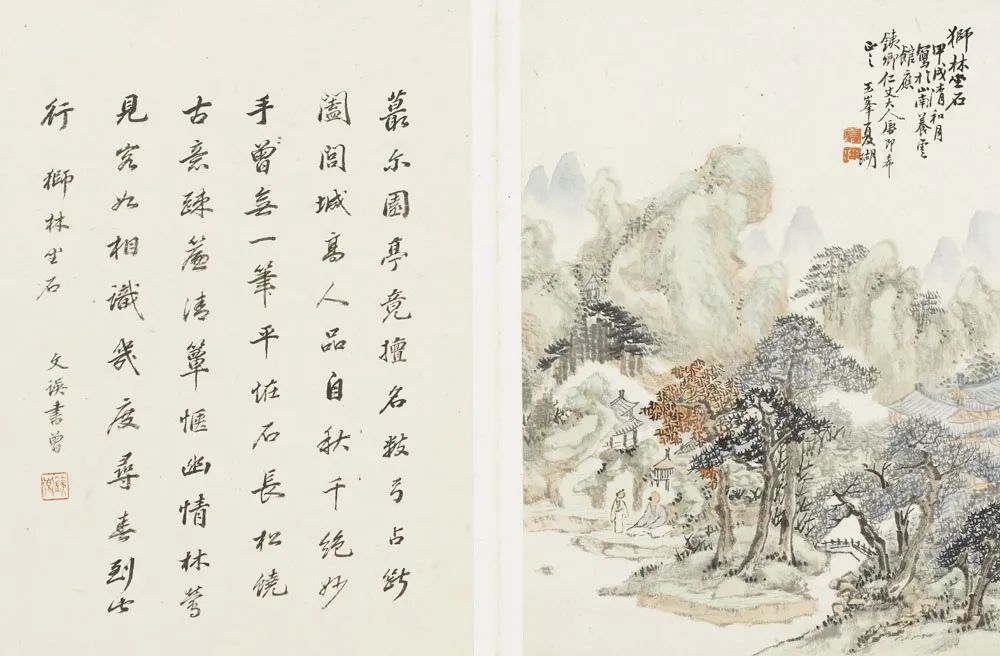 獅林坐石
甲戌清和月
寫於山南養雲
館應
鐵卿仁丈大人屬即希
正之 玉峯夏瑚
蕞尔園亭竟擅名數弓占斷
闔閭城高人品自秋千絕妙
手曾無一筆平恠石長松饒
古意疎簾清簟愜幽情林鶯
見客如相識幾度尋春到此
行 獅林坐石 文溪書曾